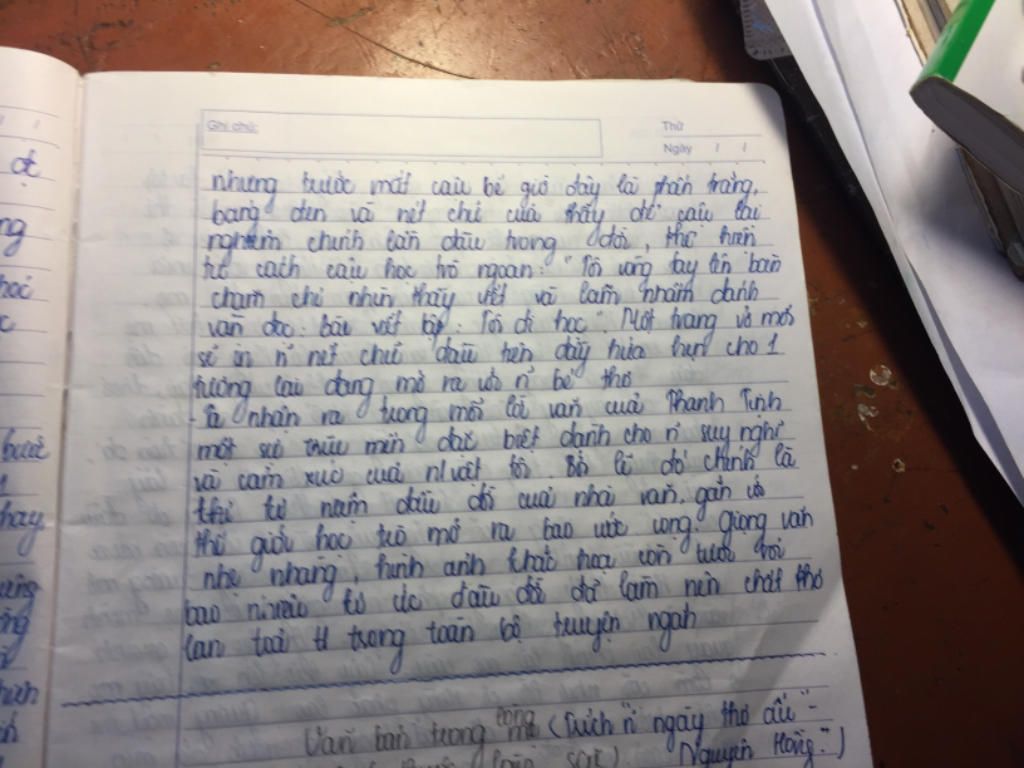 Ghi chú:
Thứ
Ngày / /
nhưng trước mắt cậu bé giờ đây là phấn trắng,
bảng đen và nét chữ của thầy để cậu lại
nghiêm chỉnh lần đầu trong đời, thể hiện
tư cách cậu học trò ngoan: "Tôi vòng tay lên bàn
chăm chỉ nhìn thầy viết và lẩm nhẩm đánh
vần đọc: bài viết tập: Tôi đi học". Một trang vở mới
sẽ in n~ nét chữ đầu tiên đầy hứa hẹn cho 1
tương lai đang mở ra với n~ bé thơ
- Ta nhận ra trong mỗi lời văn của Thanh Tịnh
một sự trìu mến đặc biệt dành cho n~ suy nghĩ
và cảm xúc của n/vật tôi. Bởi lẽ đó chính là
thứ từ năm đầu đời của nhà văn, gắn với
thế giới học trò mở ra bao ước vọng. Giọng văn
nhẹ nhàng, hình ảnh khắc họa còn tươi rói
bao nhiêu từ ức đầu đời đã làm nên chất thơ
lan toả # trong toàn bộ truyện ngắn
Văn bản trong lòng mẹ (Trích "n~ ngày thơ ấu" -
Nguyên Hồng")
ot
ng
hoc
c
bước
1
hay
ưng
ông
hiên